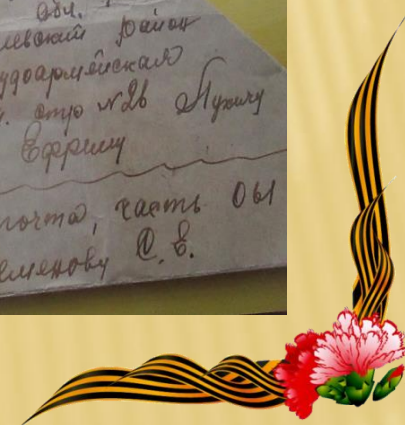 обл.
левский район
удоармейская
стр №26 Лукичу
Ефриму
почта, часть 061
еменову С. Е.